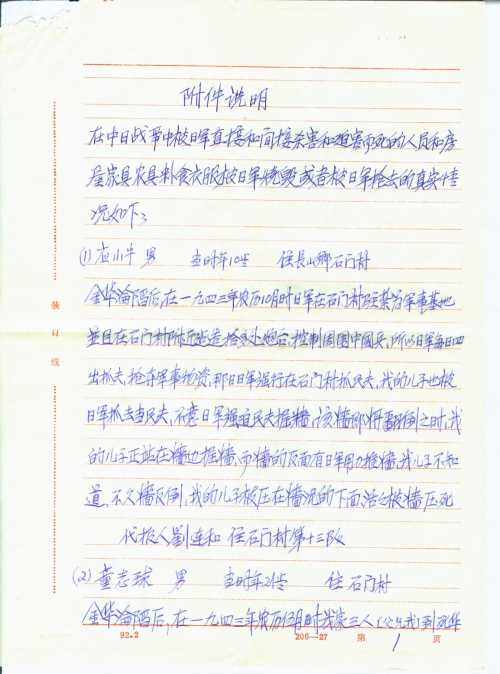 附件说明
在中日战争中被日军直接和间接杀害和迫害而死的人员和房
屋家具农具料食衣服被日军烧毁或者被日军抢去的真实情
况如下:
(1) 应小牛 男 当时年10岁 住长山乡石门村
金华沦陷后,在一九四三年农历10月时日军在石门村驻扎为军事基地
并且在石门村附近建造拾多处炮台,控制周围中國兵,所以日军每日四
出抓夫,抢夺军事物资,那日日军强行在石门村抓民夫,我的儿子也被
日军抓去当民夫,不意日军强迫民夫掘墙,该墙即将翻倒之时,我
的儿子正站在墙边掘墙,而墙的反面有日军用力推墙,我儿子不知
道,不久墙反倒,我的儿子被压在墙泥的下面,活活被墙压死
代报人劉连和 住石门村第十三队
(2) 童志球 男 当时年21岁 住石门村
金华沦陷后,在一九四三年农历 月时我家三人(父兄我)到 华
装订线
92.2 206—27 第 1 页